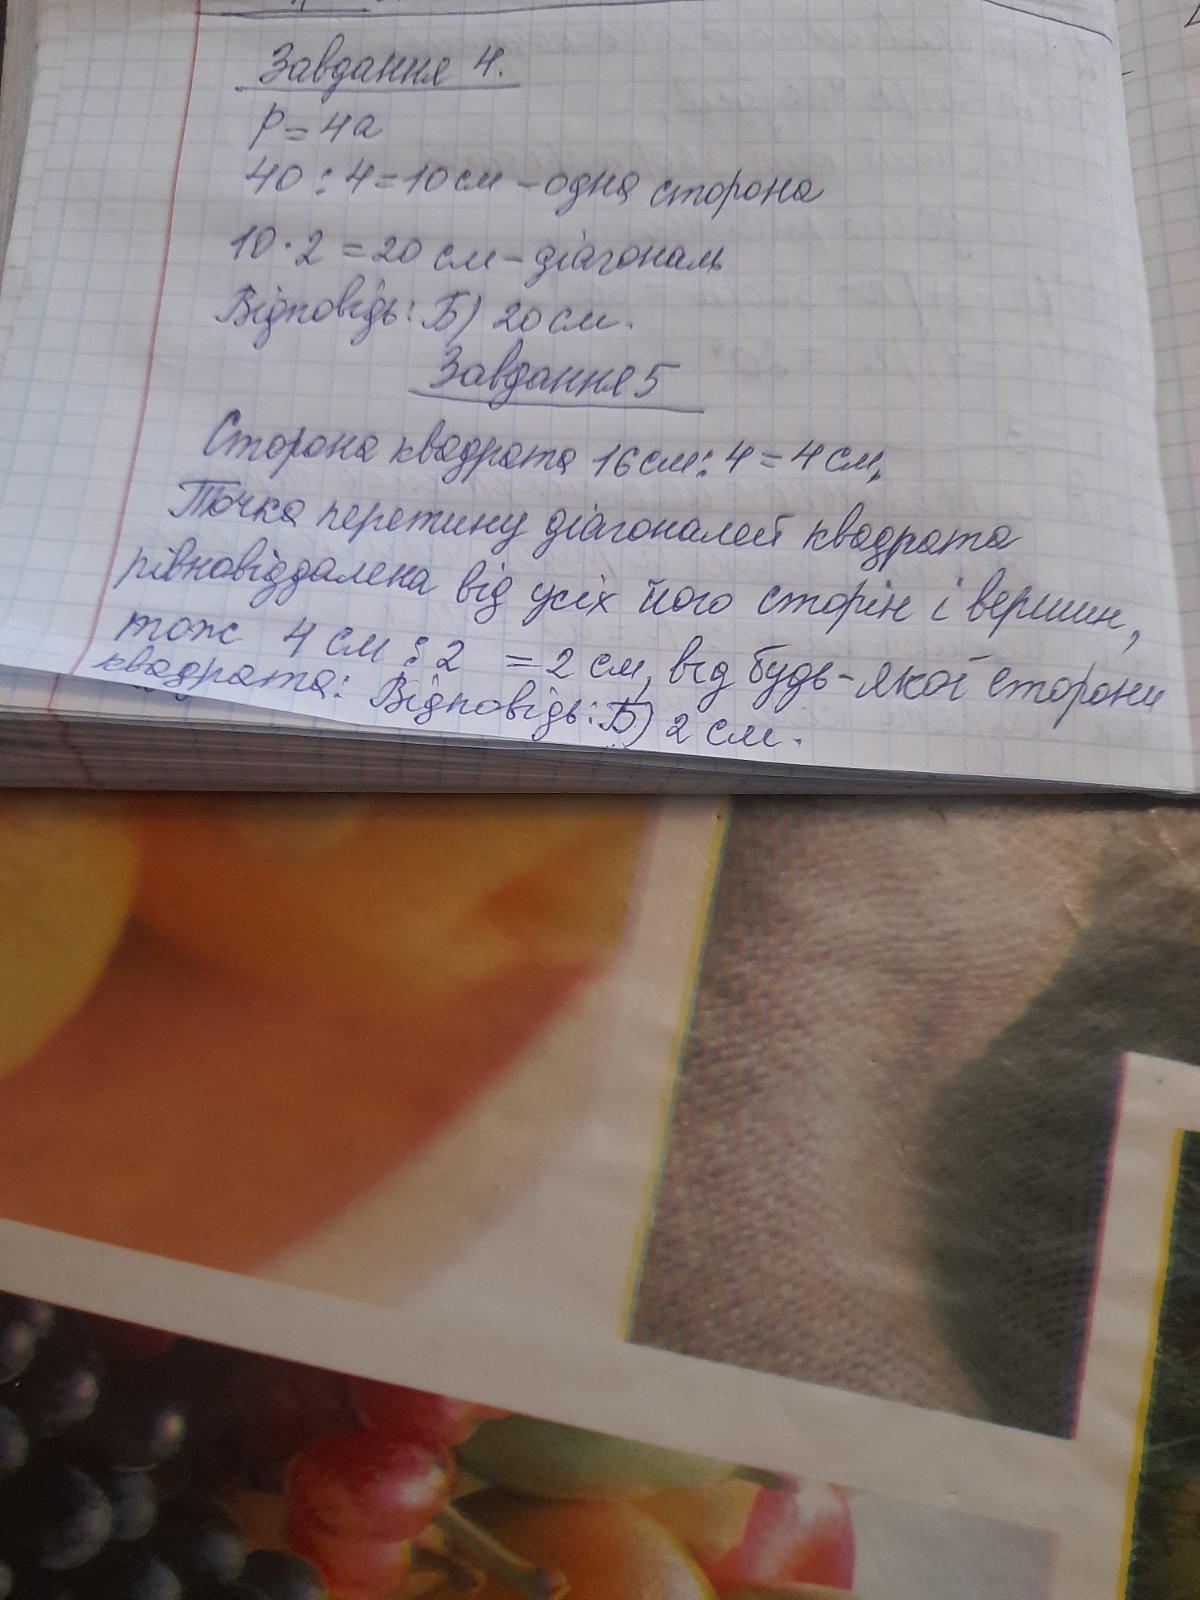 Завдання 4.
P = 4a
40 : 4 = 10 см - одна сторона
10 · 2 = 20 см - діагональ
Відповідь: Б) 20 см.
Завдання 5
Сторона квадрата 16 см : 4 = 4 см,
Точка перетину діагоналей квадрата
рівновіддалена від усіх його сторін і вершин,
тож 4 см : 2 = 2 см, від будь-якої сторони
квадрата: Відповідь: Б) 2 см.